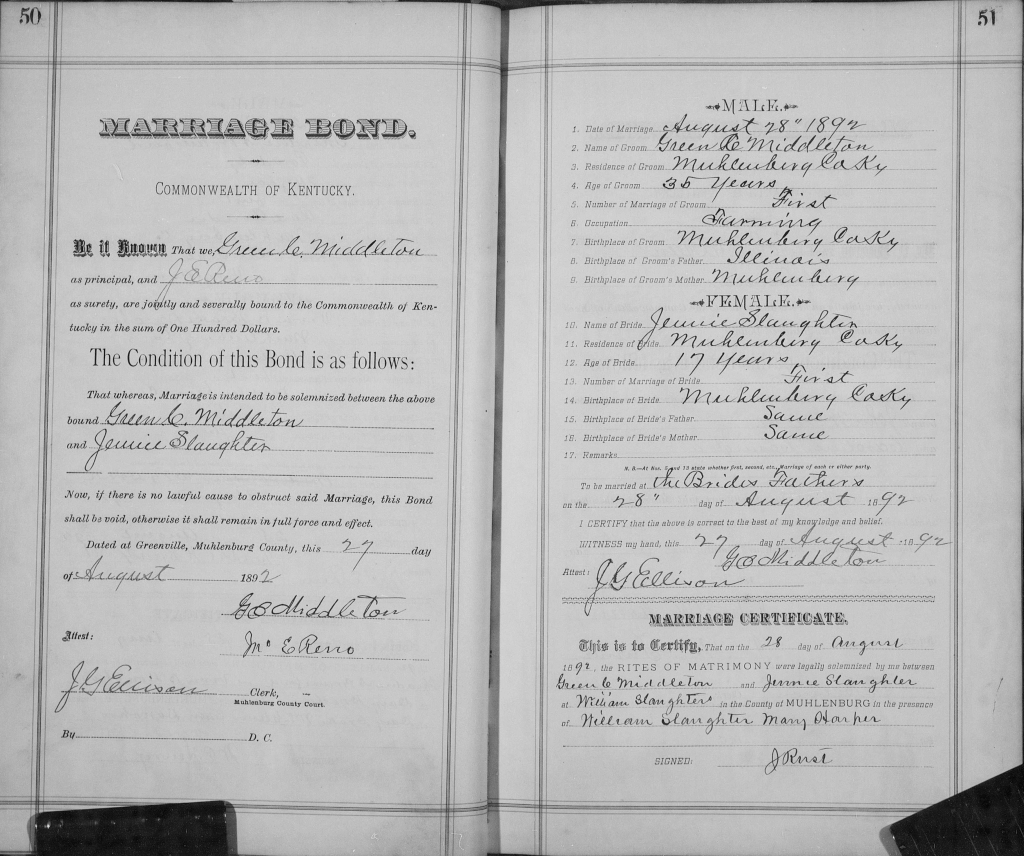 50
MARRIAGE BOND.
COMMONWEALTH OF KENTUCKY.
Be it Known That we, Green C. Middleton
as principal, and J E Reno
as surety, are jointly and severally bound to the Commonwealth of Ken-
tucky in the sum of One Hundred Dollars.
The Condition of this Bond is as follows:
That whereas, Marriage is intended to be solemnized between the above
bound Green C. Middleton
and Jennie Slaughter
Now, if there is no lawful cause to obstruct said Marriage, this Bond
shall be void, otherwise it shall remain in full force and effect.
Dated at Greenville, Muhlenburg County, this 27 day
of August 1892
G C Middleton
Attest: E Reno
J G Ellison Clerk,
Muhlenburg County Court.
By D. C.
51
MALE.
1. Date of Marriage August 28" 1892
2. Name of Groom Green C Middleton
3. Residence of Groom Muhlenburg Co Ky
4. Age of Groom 35 Years
5. Number of Marriage of Groom First
6. Occupation Farming
7. Birthplace of Groom Muhlenburg Co Ky
8. Birthplace of Groom's Father Illinois
9. Birthplace of Groom's Mother Muhlenburg
FEMALE.
10. Name of Bride Jennie Slaughter
11. Residence of Bride Muhlenburg Co Ky
12. Age of Bride 17 Years
13. Number of Marriage of Bride First
14. Birthplace of Bride Muhlenburg Co Ky
15. Birthplace of Bride's Father Same
16. Birthplace of Bride's Mother Same
17. Remarks
N. B.—At Nos. 5 and 13 state whether first, second, etc., Marriage of each or either party.
To be married at the Brides Fathers
on the 28" day of August 1892
I CERTIFY that the above is correct to the best of my knowledge and belief.
WITNESS my hand, this 27 day of August 1892
G C Middleton
Attest: J G Ellison
MARRIAGE CERTIFICATE.
This is to Certify, That on the 28 day of August
1892, the RITES OF MATRIMONY were legally solemnized by me between
Green C Middleton and Jennie Slaughter
at William Slaughters in the County of MUHLENBURG in the presence
of William Slaughter Mary Harper
SIGNED: J Rust